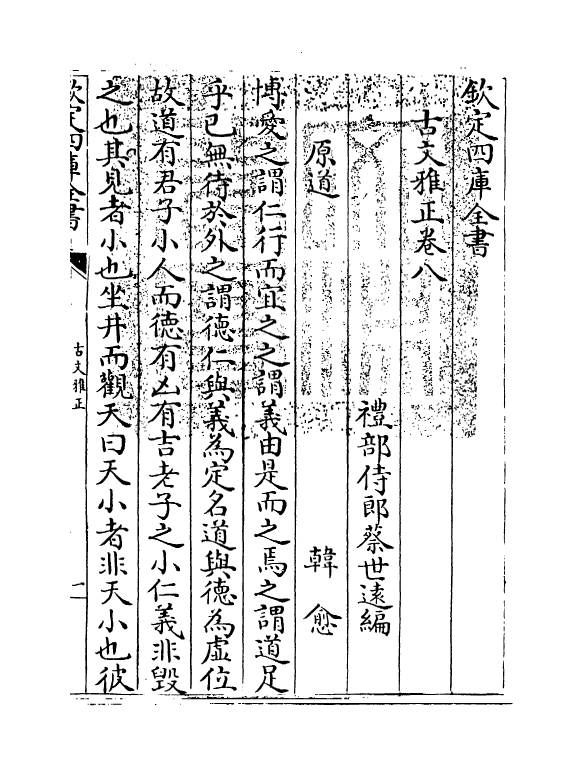 欽定四庫全書
古文雅正卷八
禮部侍郎蔡世遠編
原道 韓愈
博愛之謂仁行而宜之之謂義由是而之焉之謂道足
乎已無待於外之謂德仁與義為定名道與德為虛位
故道有君子小人而德有凶有吉老子之小仁義非毀
之也其見者小也坐井而觀天曰天小者非天小也彼
欽定四庫全書
古文雅正